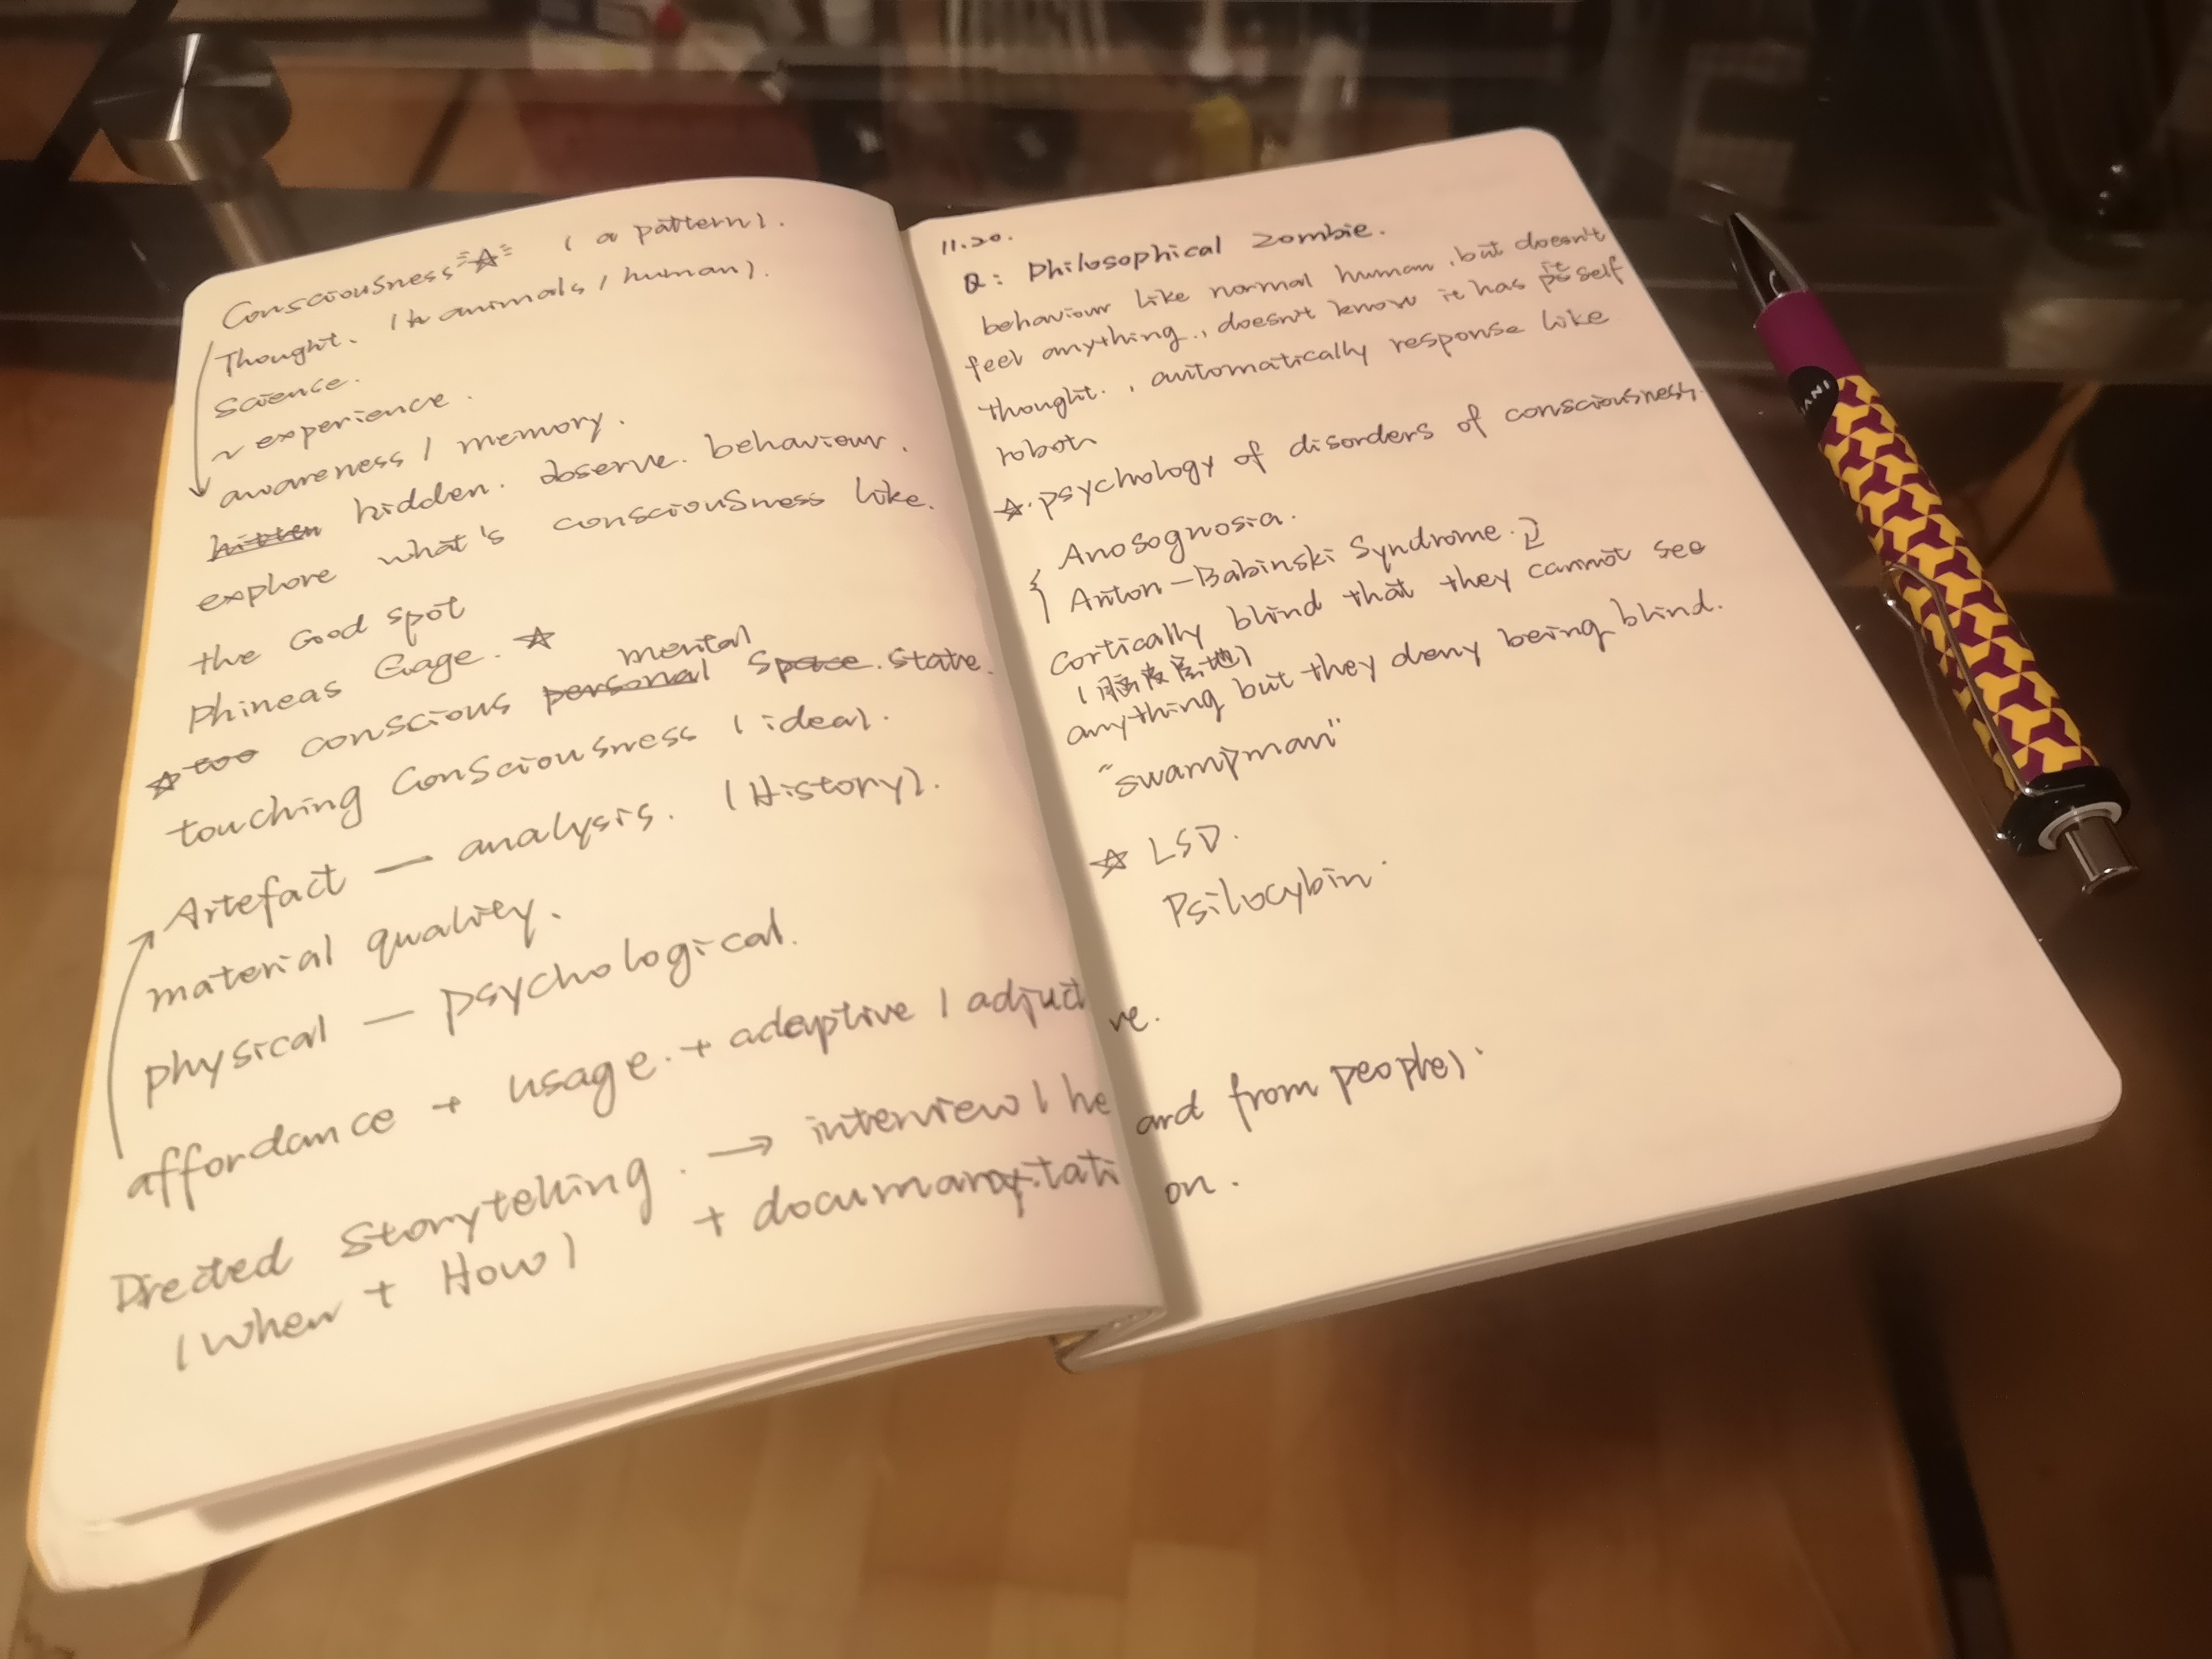 Consciousness ☆ (a pattern).
Thought. (to animals / human).
Science.
~ experience.
awareness / memory.
hidden. observe. behaviour.
explore what's consciousness like.
the Good spot
Phineas Gage. ☆
mental
☆ too conscious personal space. state.
touching Consciousness (idea).
Artefact — analysis. (History).
material quality.
physical — psychological.
affordance + usage. + adaptive / adjuctive.
Directed Storytelling. → interview (heard from people).
(When + How) + documantitation.
11.20.
Q: Philosophical Zombie.
behaviour like normal human, but doesn't
feel anything., doesn't know it has it self
thought., automatically response like
robot
☆. psychology of disorders of consciousness.
Anosognosia.
Anton-Babinski Syndrome.
Cortically blind that they cannot see
(脑皮质地)
anything but they deny being blind.
"swampman"
☆ LSD.
Psilocybin.